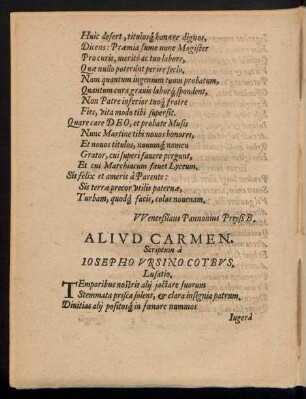 Huic desert, titulosq́ honore dignos,
Dicens: Præmia sume nunc Magister
Pro curis, meritò ac tuo labore,
Quæ nullo poterunt perire seclo.
Nam quantum ingenium tuum probatum,
Quantum cura grauis laborq́ spondent,
Non Patre inferior tuoq́ fratre
Fies, vita modò tibi supersit.
Quare care DEO, et probate Musis
Nunc Martine tibi nouos honores,
Et nouos titulos, nouumq́ nomen
Grator, cui superi fauere pergunt,
Et cui Marchiacum fouet Lyceum.
Sis felix et amerir à Parente:
Sis terræ precor vtilis paternæ,
Turbam, quodq́ facis, colas nouenam.
VVenceslaus Pannonius Preyss. B.
ALIVD CARMEN.
Scriptum à
IOSEPHO VRSINO COTBVS,
Lusatio.
TEmporibus nostris alij jactare suorum
Stemmata prisca solent, & clara insignia patrum.
Diuitias alij positosq́ in fœnore nummos
Iugerà